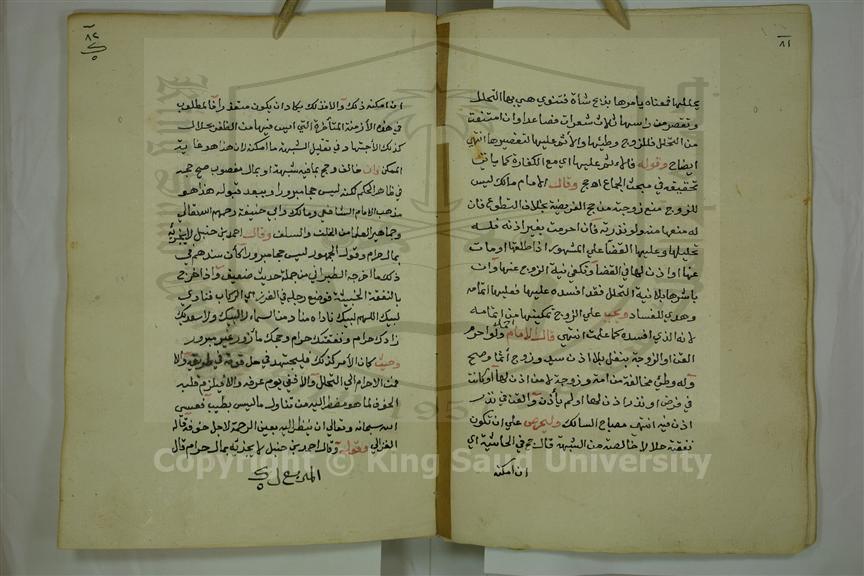 ٨١
يحللها فمعناه يأمرها بذبح شاة فتنوي هي بها التحلل
وتقصر من راسها ثلاث شعرات فصاعدا وان امتنعت
من التحلل فللزوج وطيها والاثم عليها لتقصيرها انتهى
ايضاح وقوله فالاثم عليها اي مع الكفارة كما ياتي
تحقيقه في مبحث الجماع اهـ حج وقال الامام مالك ليس
للزوج منع زوجته من حج الفريضة بخلاف التطوع فان
له منعها منه ولو نذرته فان احرمت بغير اذنه فله
تحليلها وعليها القضا على المشهور اذا طلقها او مات
عنها او اذن لها في القضا وتكفي نية الزوج عنها وان
باشرها بلا نية التحلل فقد افسده عليها فعليها اتمامه
وهدي للفساد ويجب على الزوج تمكينها من اتمامه
لانه الذي افسده كما علمت انتهى قال الامام ولو احرم
القن او الزوجة بنفل بلا اذن سيد وزوج اثما وصح
وله وطئ مخالفة من امة وزوجة لا من اذن لها او كانت
في فرض او نذر اذن لها او لم ياذن والقن في نذر
اذن فيه انتهى مصباح السالك وليحرص على ان تكون
نفقته حلالا خالصة من الشبهة قال حج في الحاشية اي
ان امكنه
٨٢
ان امكنه ذلك والا فذلك يكاد ان يكون متعذرا فالمطلوب
في هذه الازمنة المتأخرة التي ايس فيها من الظفر بحلال
كذلك الاجتهاد في تقليل الشبهة ما امكنه لان هذا هو غاية
الممكن وان خالف وحج بما فيه شبهة او بمال مغصوب صح حجه
في ظاهر الحكم لكنه ليس حجا مبرورا ويبعد قبوله هذا هو
مذهب الامام الشافعي ومالك وابي حنيفة رحمهم الله تعالى
وجماهير العلما من الخلف والسلف وقال احمد بن حنبل لا يجزيه
بمال حرام وقول الجمهور ليس حجا مبرورا كأن سندهم في
ذلك ما اخرجه الطبراني من جملة حديث ضعيف واذا خرج
بالنفقة الخبيثة فوضع رجله في الغرز اي الركاب فنادى
لبيك اللهم لبيك ناداه مناد من السماء لا لبيك ولا سعديك
زادك حرام ونفقتك حرام وحجك مأزور غير مبرور
وحيث كان الامر كذلك فليجتهد في حل قوته في طريقه والا
فمن الاحرام الى التحلل والا ففي يوم عرفه والا فيلزم قلبه
الخوف لما هو مضطر اليه من تناول ما ليس بطيب فعسى
الله سبحانه وتعالى ان ينظر اليه بعين الرحمة لاجل خوفه قاله
الغزالي وقوله وقال احمد بن حنبل لا يجزيه بمال حرام قال
Copyright © King Saud University